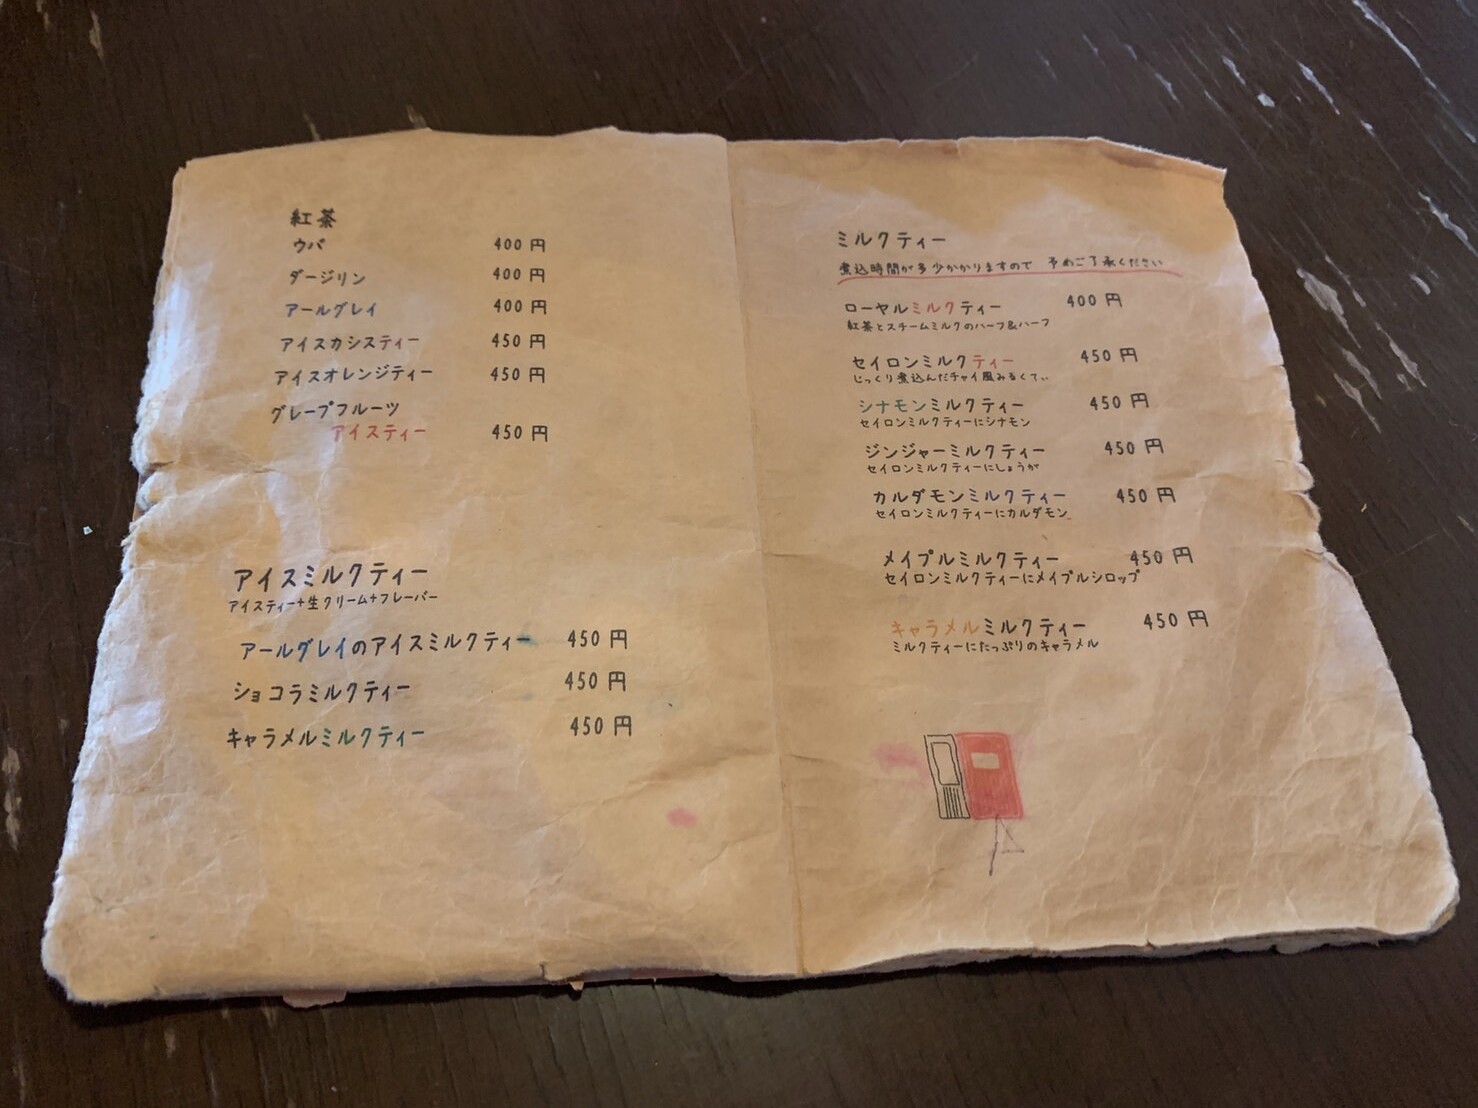 紅茶
ウバ 400円
ダージリン 400円
アールグレイ 400円
アイスカシスティー 450円
アイスオレンジティー 450円
グレープフルーツ
アイスティー 450円
アイスミルクティー
アイスティー+生クリーム+フレーバー
アールグレイのアイスミルクティー 450円
ショコラミルクティー 450円
キャラメルミルクティー 450円
ミルクティー
煮込時間が多少かかりますので 予めご了承ください
ローヤルミルクティー 400円
紅茶とスチームミルクのハーフ&ハーフ
セイロンミルクティー 450円
じっくり煮込んだチャイ風みるくてぃ
シナモンミルクティー 450円
セイロンミルクティーにシナモン
ジンジャーミルクティー 450円
セイロンミルクティーにしょうが
カルダモンミルクティー 450円
セイロンミルクティーにカルダモン
メイプルミルクティー 450円
セイロンミルクティーにメイプルシロップ
キャラメルミルクティー 450円
ミルクティーにたっぷりのキャラメル